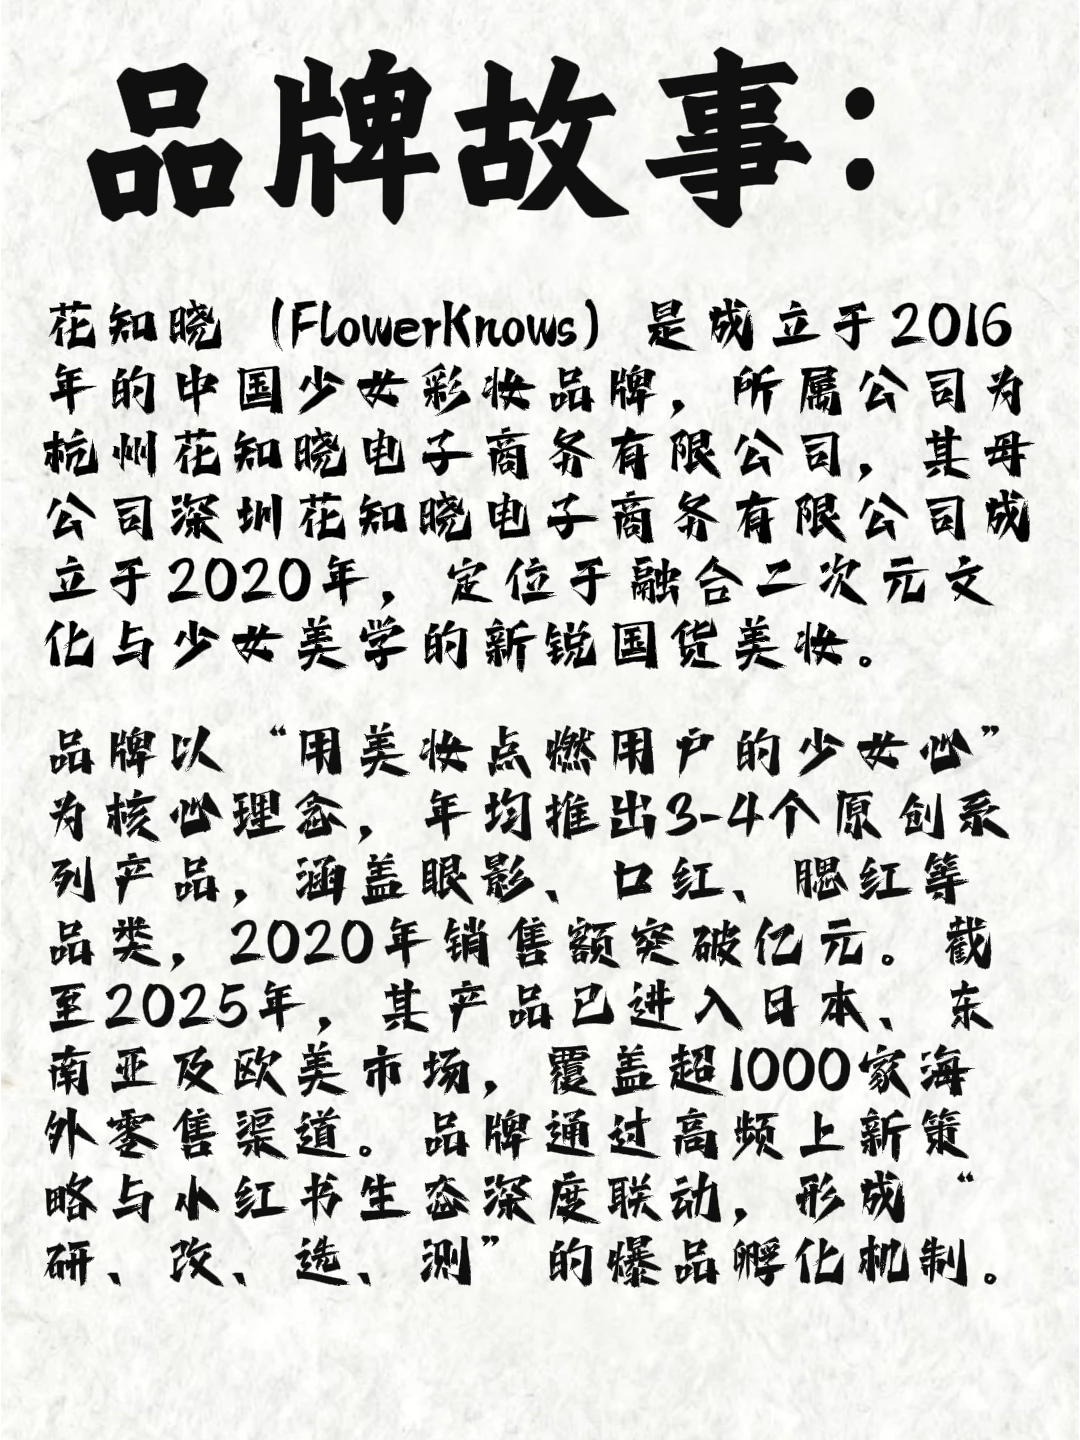 品牌故事：
花知晓（FlowerKnows）是成立于2016
年的中国少女彩妆品牌，所属公司为
杭州花知晓电子商务有限公司，其母
公司深圳花知晓电子商务有限公司成
立于2020年，定位于融合二次元文
化与少女美学的新锐国货美妆。
品牌以“用美妆点燃用户的少女心”
为核心理念，年均推出3-4个原创系
列产品，涵盖眼影、口红、腮红等
品类，2020年销售额突破亿元。截
至2025年，其产品已进入日本、东
南亚及欧美市场，覆盖超1000家海
外零售渠道。品牌通过高频上新策
略与小红书生态深度联动，形成“
研、改、选、测”的爆品孵化机制。